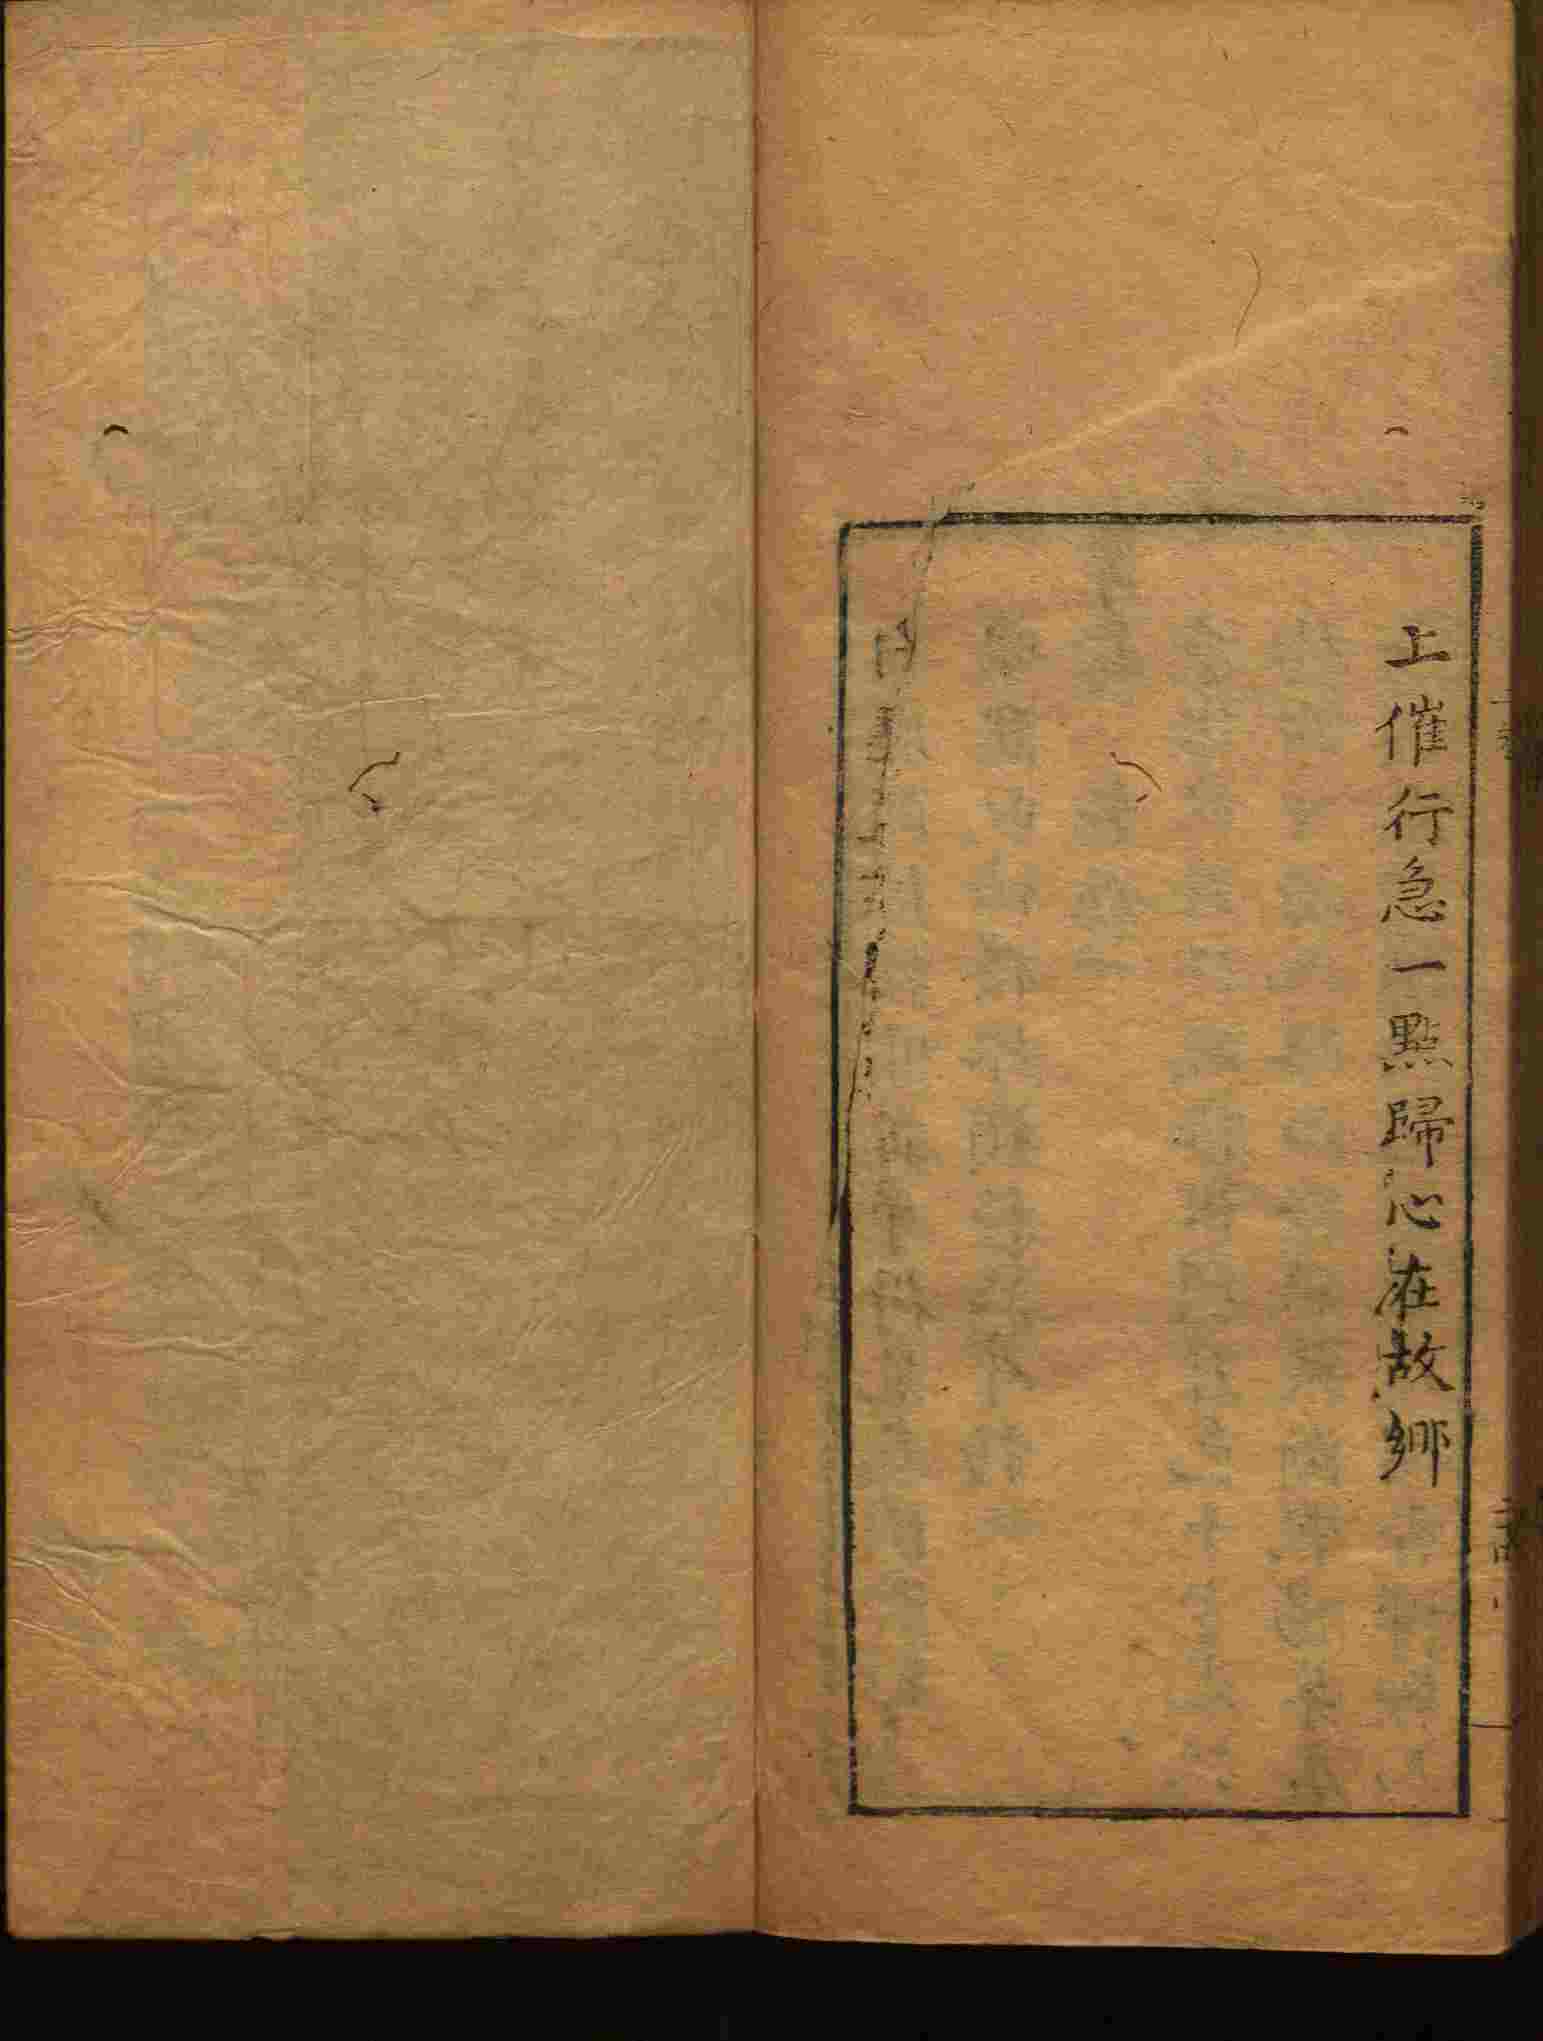 上催行急一點歸心在故鄉